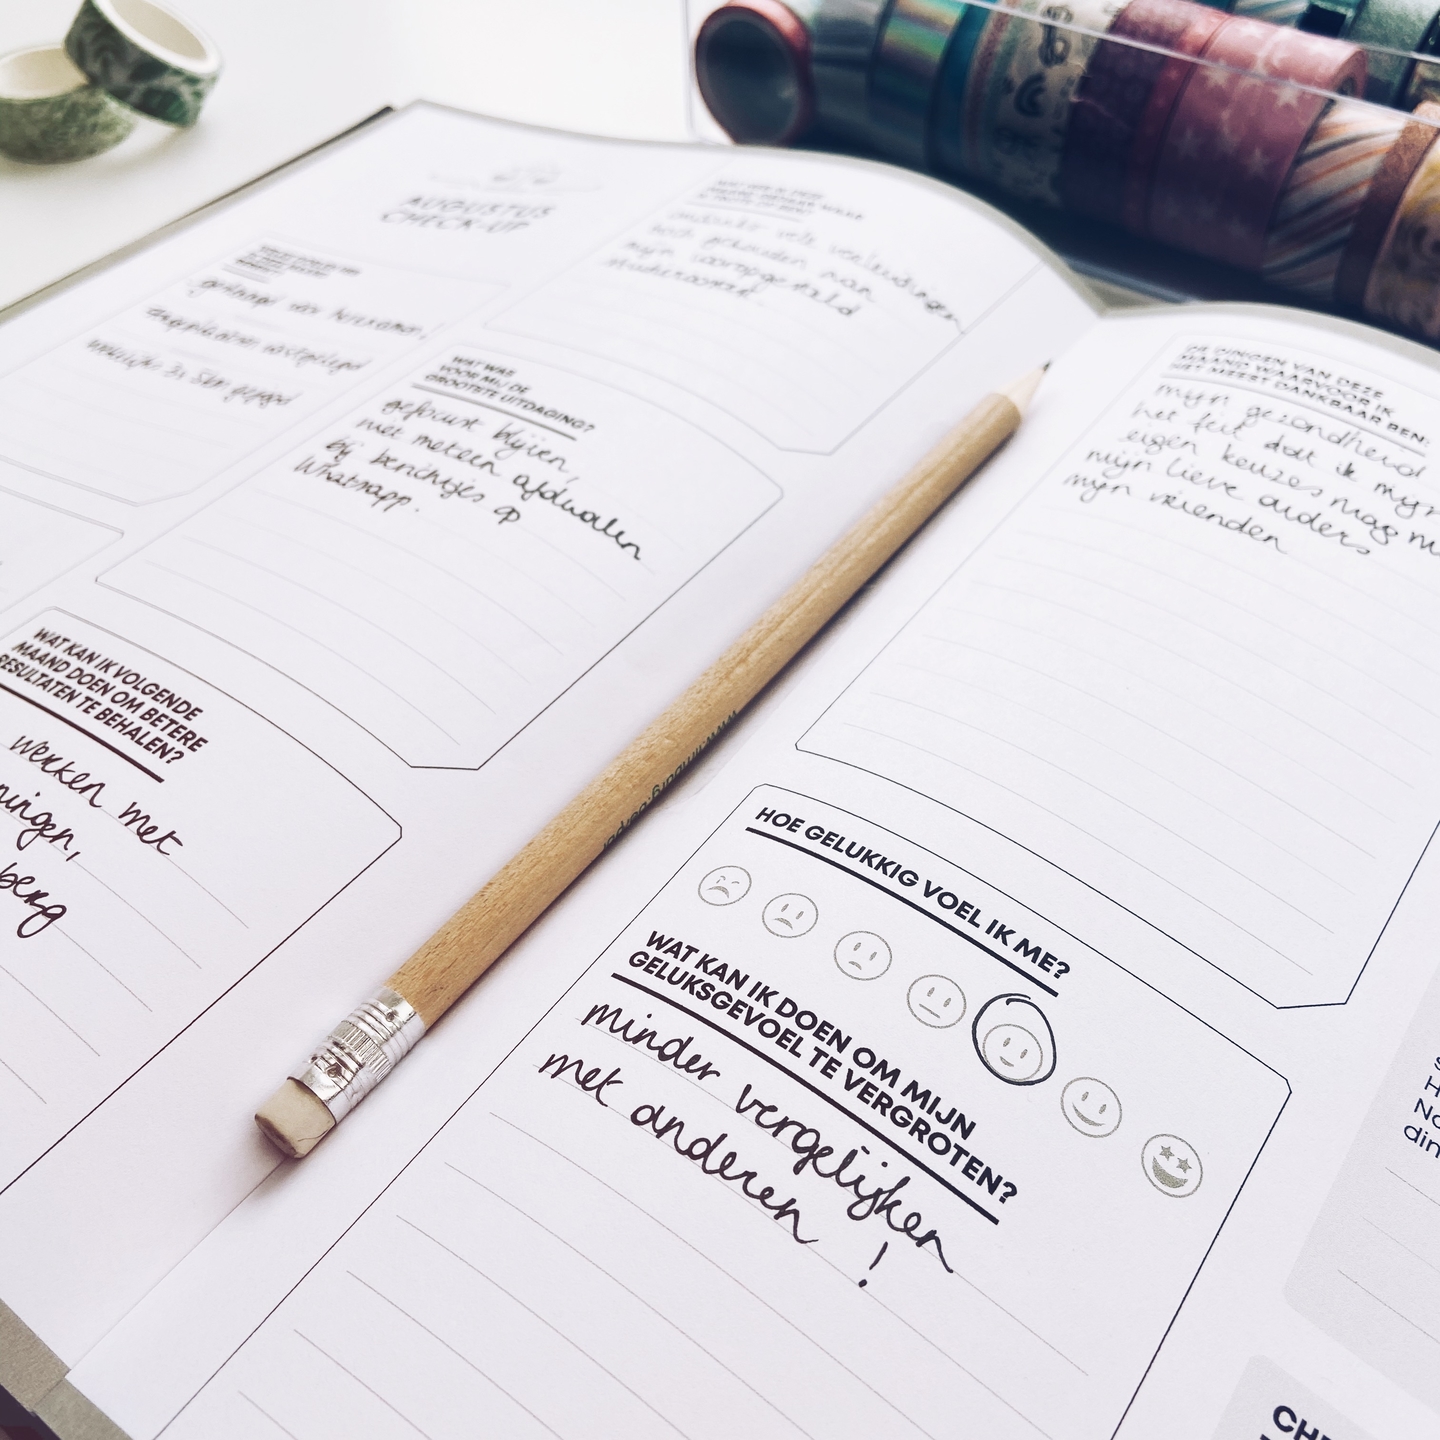 AUGUSTUS
CHECK-UP
geslaagd voor herexamen
vastgelegd
wekelijks 3x
onder vele verleidingen
toch gehouden aan
mijn vooropgesteld
WAT WAS
VOOR MIJ DE
GROOTSTE UITDAGING?
gefocust blijven,
niet meteen afdwalen
bij berichtjes op
Whatsapp.
WAT KAN IK VOLGENDE
MAAND DOEN OM BETERE
RESULTATEN TE BEHALEN?
werken met
ningen,
berg
3 DINGEN VAN DEZE
MAAND WAARVOOR IK
HET MEEST DANKBAAR BEN:
mijn gezondheid
het feit dat ik mijn
eigen keuzes mag m
mijn lieve ouders
mijn vrienden
HOE GELUKKIG VOEL IK ME?
WAT KAN IK DOEN OM MIJN
GELUKSGEVOEL TE VERGROTEN?
minder vergelijken
met anderen !
S
H
No
din
CH